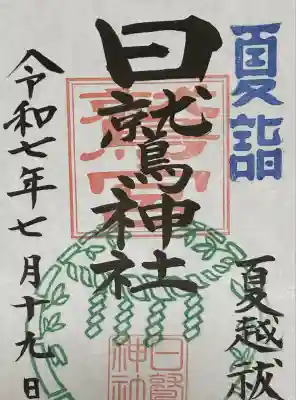 夏詣
夏越祓
日鷲神社
日鷲
神社
令和七年七月十九日